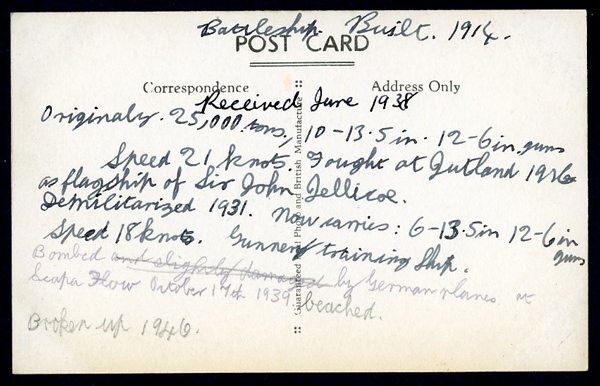 Battleship. Built. 1914.
POST CARD
Correspondence
Address Only
Received June 1938
Originaly. 25,000 tons., 10-13.5 in. 12-6 in. guns
Speed 21 knots. Fought at Jutland 1916
as flagship of Sir John Jellicoe.
Demilitarized 1931. Now carries: 6-13.5in 12-6in guns
Speed 18 knots. Gunnery training Ship.
Bombed and slightly damaged by German planes at
Scapa Flow October 17th 1939. beached.
Broken up 1946.
Guaranteed Real Photo and British Manufacture